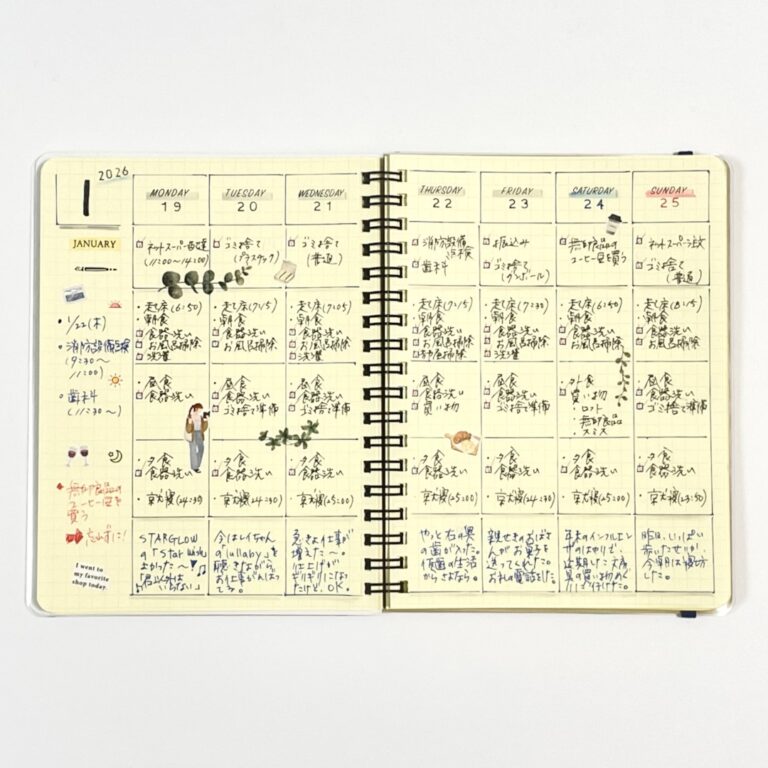 1
2026
JANUARY
・1/22(木)
・消防設備点検
(9:30〜
11:00)
・歯科
(11:30〜)
無印良品の
コーヒー豆を
買う
忘れずに!
I went to
my favorite
shop today.
MONDAY
19
ネットスーパー配達
(12:00〜14:00)
・起床(6:50)
・朝食
食器洗い
お風呂掃除
洗濯
・昼食
食器洗い
・夕食
食器洗い
・就寝(24:30)
STARGLOW
の「Star Wish」
よかった〜!
「君以外は
いらない」
TUESDAY
20
ゴミ捨て
(プラスチック)
・起床(7:15)
・朝食
食器洗い
お風呂掃除
・昼食
食器洗い
ゴミ捨て準備
・夕食
食器洗い
・就寝(24:30)
今はレイちゃん
の「lullaby」を
聴きながら、
お仕事がんばっ
てる。
WEDNESDAY
21
ゴミ捨て
(普通)
・起床(7:05)
・朝食
食器洗い
お風呂掃除
洗濯
・昼食
食器洗い
ゴミ捨て準備
・夕食
食器洗い
・就寝(25:00)
急きょ仕事が
増えた〜。
仕上げが
ギリギリになっ
たけど、OK。
THURSDAY
22
消防設備
点検
歯科
・起床(7:15)
・朝食
食器洗い
お風呂掃除
・昼食
食器洗い
買い物
・夕食
食器洗い
・就寝(25:00)
やっと右の奥
の歯が入った。
仮歯の生活
からさよなら。
FRIDAY
23
お振込み
ゴミ捨て
(ダンボール)
・起床(7:30)
・朝食
食器洗い
お風呂掃除
洗濯
・昼食
食器洗い
・夕食
食器洗い
・就寝(24:00)
親せきのおばさ
んがお菓子を
送ってくれた。
お礼の電話をした。
SATURDAY
24
無印良品の
コーヒー豆を買う
・起床(6:40)
・朝食
食器洗い
お風呂掃除
・外食
買い物
・ロフト
・無印良品
・夕食
食器洗い
・就寝(25:00)
SUNDAY
25
ネットスーパー注文
ゴミ捨て
(普通)
・起床(8:15)
・朝食
食器洗い
お風呂掃除
・昼食
食器洗い
ゴミ捨て準備
・夕食
食器洗い
・就寝(23:50)
昨日、いっぱい
歩いたせいか、